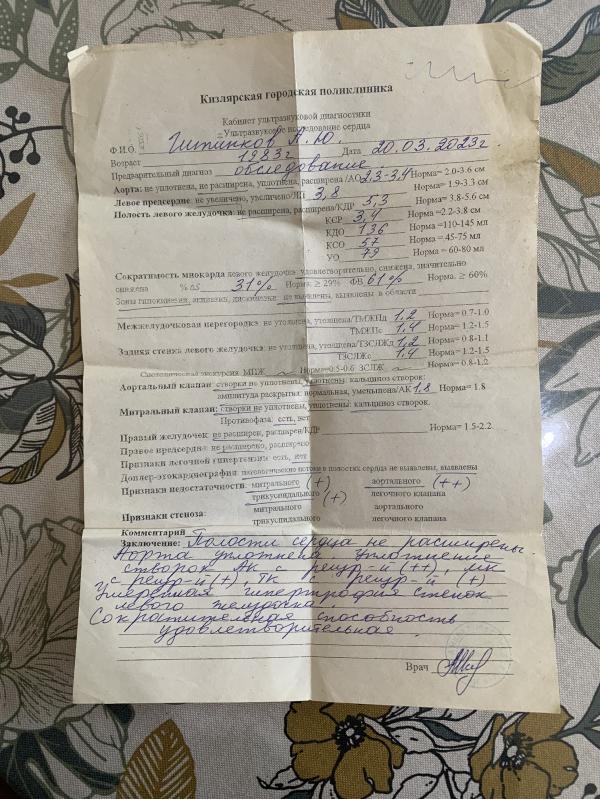 Кизлярская городская поликлиника
Кабинет ультразвуковой диагностики
Ультразвуковое исследование сердца
Ф.И.О. А.Ю.
Возраст 1983г Дата 20.03.2023г.
Предварительный диагноз обследование
Аорта: не уплотнена, не расширена, уплотнена, расширена /АО 2.3-3,4 Норма= 2.0-3.6 см
Левое предсердие: не увеличено, увеличено/ЛП 3,8 Норма= 1.9-3.3 см
Полость левого желудочка: не расширена, расширена/КДР 5,3 Норма= 3.8-5.6 см
КСР 3,4 Норма =2.2-3.8 см
КДО 136 Норма =110-145 мл
КСО 57 Норма = 45-75 мл
УО 79 Норма = 60-80 мл
Сократимость миокарда левого желудочка: удовлетворительно, снижена, значительно
снижена %ΔS 31% Норма: ≥ 29% ФВ 61% Норма. ≥ 60%
Зоны гипокинезии, акинезии, дискинезии: не выявлены, выявлены в области
Межжелудочковая перегородка: не утолщена, утолщена/ТМЖПд 1,2 Норма= 0.7-1.0
ТМЖПс 1,4 Норма= 1.2-1.5
Задняя стенка левого желудочка: не утолщена, утолщена/ТЗСЛЖд 1,2 Норма= 0.8-1.1
ТЗСЛЖс 1,4 Норма= 1.2-1.5
Систолическая экскурсия МПЖ ~ Норма=0.5-0.6 ЗСЛЖ ~ Норма= 0.8-1.2
Аортальный клапан: створки не уплотнены, уплотнены: кальциноз створок:
амплитуда раскрытия: нормальная, уменьшена/АК 1,8 Норма= 1.8
Митральный клапан: створки не уплотнены, уплотнены: кальциноз створок.
Противофаза: есть, нет
Правый желудочек: не расширен, расширен/КДР Норма= 1.5-2.2
Правое предсердие: не расширено, расширено
Признаки легочной гипертензии: есть, нет
Доплер-эхокардиография: патологические потоки в полостях сердца не выявлены, выявлены
Признаки недостаточности: митрального (+) аортального (++)
трикуспидального (+) легочного клапана
Признаки стеноза: митрального аортального
трикуспидального легочного клапана
Комментарий
Заключение: Полости сердца не расширены.
Аорта уплотнена. Уплотнение
створок АК с регур-й (++), МК
с регур-й (+), ТК с регур-й (+)
Умеренная гипертрофия стенок
левого желудочка.
Сократительная способность
удовлетворительная.
Врач